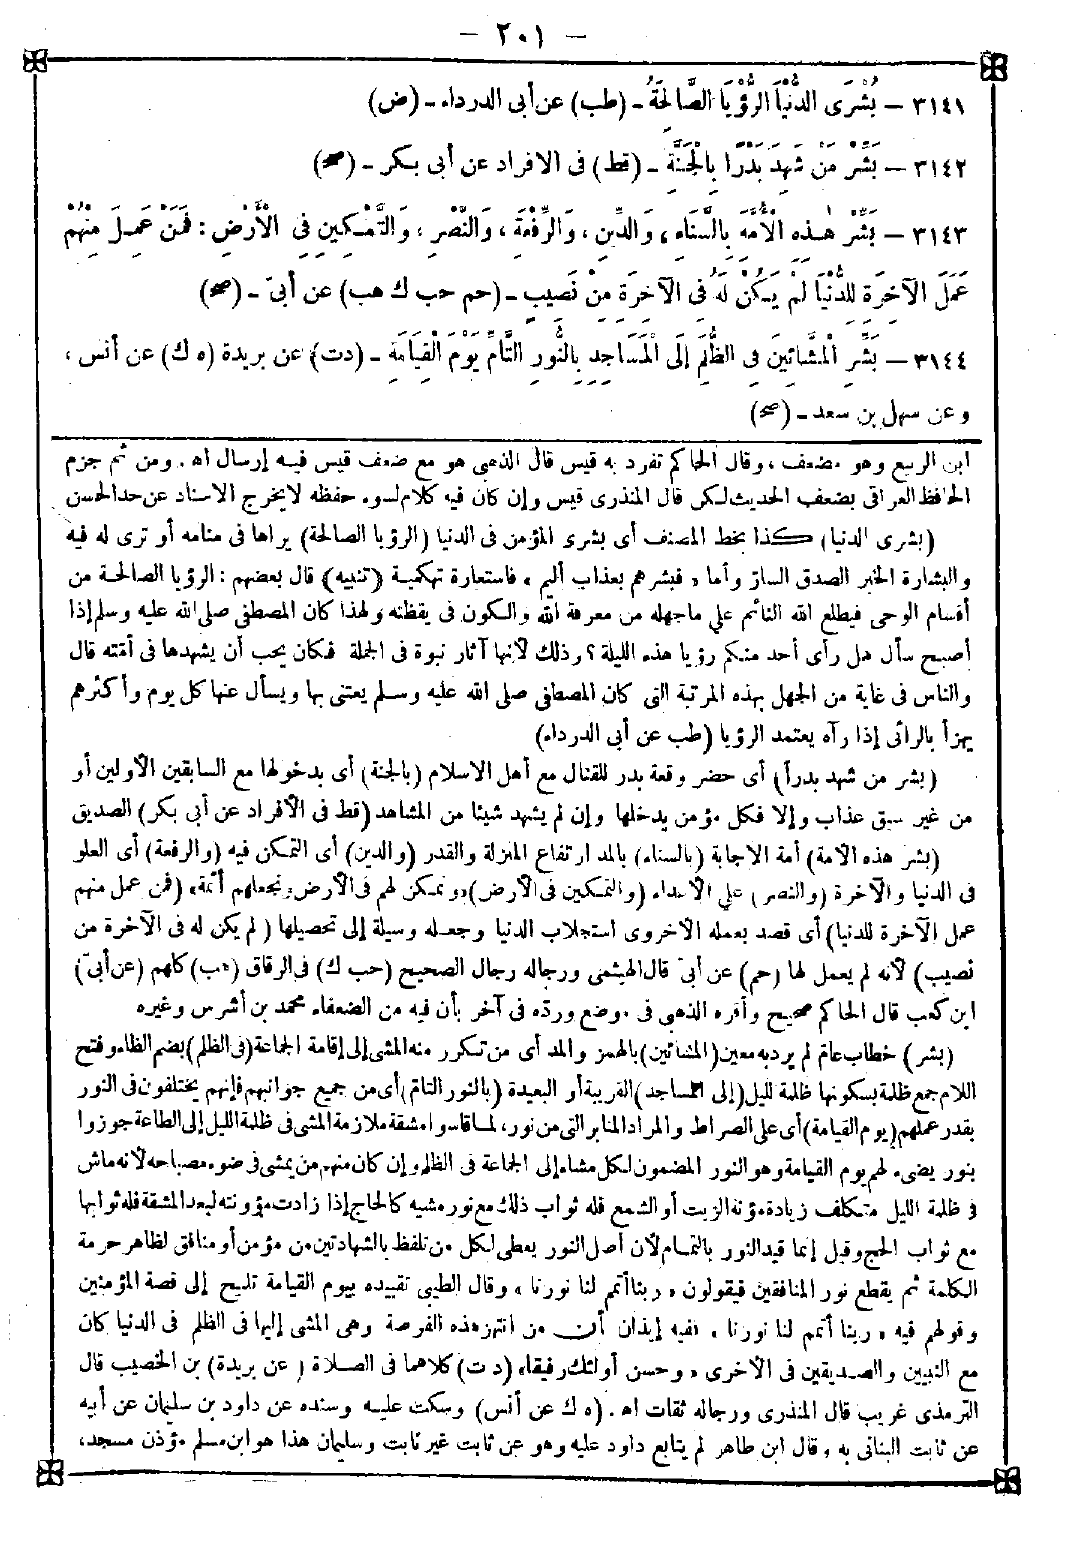 – ٢٠١ –
٣١٤١ – بُشْرَى الدُّنْيَا الرُّؤْيَا الصَّالِحَةُ – (طب) عن أبى الدرداء – (ض)
٣١٤٢ – بَشِّرْ مَنْ شَهِدَ بَدْرًا بِالْجَنَّةِ – (قط) فى الافراد عن أبى بكر – (صح)
٣١٤٣ – بَشِّرْ هٰذِهِ الْأُمَّةَ بِالسَّنَاءِ، وَالدِّينِ، وَالرِّفْعَةِ، وَالنَّصْرِ، وَالتَّمْكِينِ فِى الْأَرْضِ: فَمَنْ عَمِلَ مِنْهُمْ
عَمَلَ الْآخِرَةِ لِلدُّنْيَا لَمْ يَكُنْ لَهُ فِى الْآخِرَةِ مِنْ نَصِيبٍ – (حم حب ك هب) عن أبىّ – (صح)
٣١٤٤ – بَشِّرِ الْمَشَّائِينَ فِى الظُّلَمِ إِلَى الْمَسَاجِدِ بِالنُّورِ التَّامِّ يَوْمَ الْقِيَامَةِ – (دت) عن بريدة (ه ك) عن أنس،
وعن سهل بن سعد – (صح)
ابن الربيع وهو مضعف، وقال الحاكم تفرد به قيس قال الذهبى هو مع ضعف قيس فيه إرسال اه. ومن ثم جزم
الحافظ العراقى بضعف الحديث لكن قال المنذرى قيس وإن كان فيه كلام لسوء حفظه لا يخرج الاسناد عن حد الحسن
(بشرى الدنيا) كذا بخط المصنف أى بشرى المؤمن فى الدنيا (الرؤيا الصالحة) يراها فى منامه أو ترى له فيه
والبشارة الخبر الصدق السارّ وأما «فبشرهم بعذاب أليم» فاستعارة تهكمية (تنبيه) قال بعضهم: الرؤيا الصالحة من
أقسام الوحى فيطلع الله النائم على ماجهله من معرفة الله والكون فى يقظته ولهذا كان المصطفى صلى الله عليه وسلم إذا
أصبح سأل هل رأى أحد منكم رؤيا هذه الليلة؟ وذلك لأنها آثار نبوة فى الجملة فكان يحب أن يشهدها فى أمّته قال
والناس فى غاية من الجهل بهذه المرتبة التى كان المصطفى صلى الله عليه وسلم يعتنى بها ويسأل عنها كل يوم وأكثرهم
يهزأ بالرائى إذا رآه يعتمد الرؤيا (طب عن أبى الدرداء)
(بشر من شهد بدراً) أى حضر وقعة بدر للقتال مع أهل الاسلام (بالجنة) أى بدخولها مع السابقين الأولين أو
من غير سبق عذاب وإلا فكل مؤمن يدخلها وإن لم يشهد شيئا من المشاهد (قط فى الأفراد عن أبى بكر) الصديق
(بشر هذه الامة) أمة الاجابة (بالسناء) بالمد ارتفاع المنزلة والقدر (والدين) أى التمكن فيه (والرفعة) أى العلو
فى الدنيا والآخرة (والنصر) على الأعداء (والتمكين فى الأرض) «ونمكن لهم فى الأرض ونجعلهم أئمة» (فمن عمل منهم
عمل الآخرة للدنيا) أى قصد بعمله الأخروى استجلاب الدنيا وجعله وسيلة إلى تحصيلها (لم يكن له فى الآخرة من
نصيب) لأنه لم يعمل لها (حم) عن أبىّ قال الهيثمى ورجاله رجال الصحيح (حب ك) فى الرقاق (هب) كلهم (عن أبىّ)
ابن كعب قال الحاكم صحيح وأقره الذهبى فى موضع ورده فى آخر بأن فيه من الضعفاء محمد بن أشرس وغيره
(بشر) خطاب عامّ لم يرد به معين (المشائين) بالهمز والمد أى من تكرر منه المشى إلى إقامة الجماعة (فى الظلم) بضم الظاء وفتح
اللام جمع ظلمة بسكونها ظلمة الليل (إلى المساجد) القريبة أو البعيدة (بالنور التامّ) أى من جميع جوانبهم فإنهم يختلفون فى النور
بقدر عملهم (يوم القيامة) أى على الصراط والمراد المنابر التى من نور، لما قاسوا مشقة ملازمة المشى فى ظلمة الليل إلى الطاعة جوزوا
بنور يضىء لهم يوم القيامة وهو النور المضمون لكل مشاء إلى الجماعة فى الظلم وإن كان منهم من يمشى فى ضوء مصباحه لأنه ماش
فى ظلمة الليل متكلف زيادة مؤنة الزيت أو الشمع فله ثواب ذلك مع نور مشيه كالحاج إذا زادت مؤونته لبعد المشقة فله ثوابها
مع ثواب الحج وقيل إنما قيد النور بالتمام لأن أصل النور يعطى لكل من تلفظ بالشهادتين من مؤمن أو منافق لظاهر حرمة
الكلمة ثم يقطع نور المنافقين فيقولون «ربنا أتمم لنا نورنا» وقال الطيبى تقييده بيوم القيامة تلميح إلى قصة المؤمنين
وقولهم فيه «ربنا أتمم لنا نورنا» ففيه إيذان أن من انتهز هذه الفرصة وهى المشى إليها فى الظلم فى الدنيا كان
مع النبيين والصديقين فى الأخرى «وحسن أولئك رفيقا» (د ت) كلاهما فى الصلاة (عن بريدة) بن الخصيب قال
الترمذى غريب قال المنذرى ورجاله ثقات اه. (ه ك عن أنس) وسكت عليه وسنده عن داود بن سليمان عن أبيه
عن ثابت البنانى به وقال ابن طاهر لم يتابع داود عليه وهو عن ثابت غير ثابت وسليمان هذا هو ابن مسلم مؤذن مسجد،